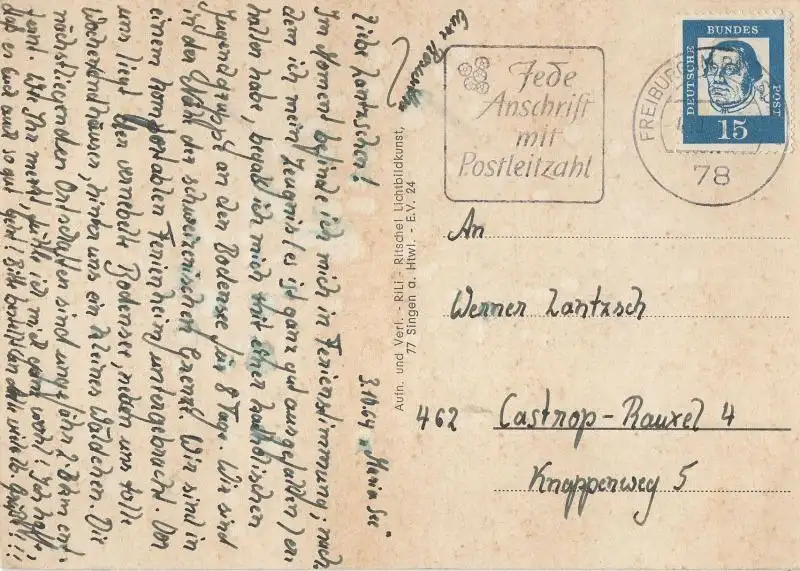 3.10.64 Maria See
Liebe Lantzschen!
Im Moment befinde ich mich in Ferienstimmung; nach-
dem ich mein Zeugnis (es ist ganz gut ausgefallen) er-
halten habe, begab ich mich mit einer katholischen
Jugendgruppe an den Bodensee für 8 Tage. Wir sind
in der Nähe der schweizerischen Grenze. Wir sind in
einem komfortablen Ferienheim untergebracht. Vor
uns liegt der vernebelte Bodensee, neben uns tolle
Wochenendhäuser, hinter uns ein kleines Wäldchen. Die
nächstliegenden Ortschaften sind ungefähr 2-3 km ent-
fernt. Wie Ihr merkt, fühle ich mich ganz wohl! Ich hoffe,
daß es Euch auch so gut geht! Bitte
Eure
Aufn. und Verl. - RiLi - Ritschel Lichtbildkunst,
77 Singen a. Htwl. - E.V. 24
Jede
Anschrift
mit
Postleitzahl
FREIBURG
78
DEUTSCHE BUNDES POST
15
An
Werner Lantzsch
462 Castrop-Rauxel 4
Knappenweg 5